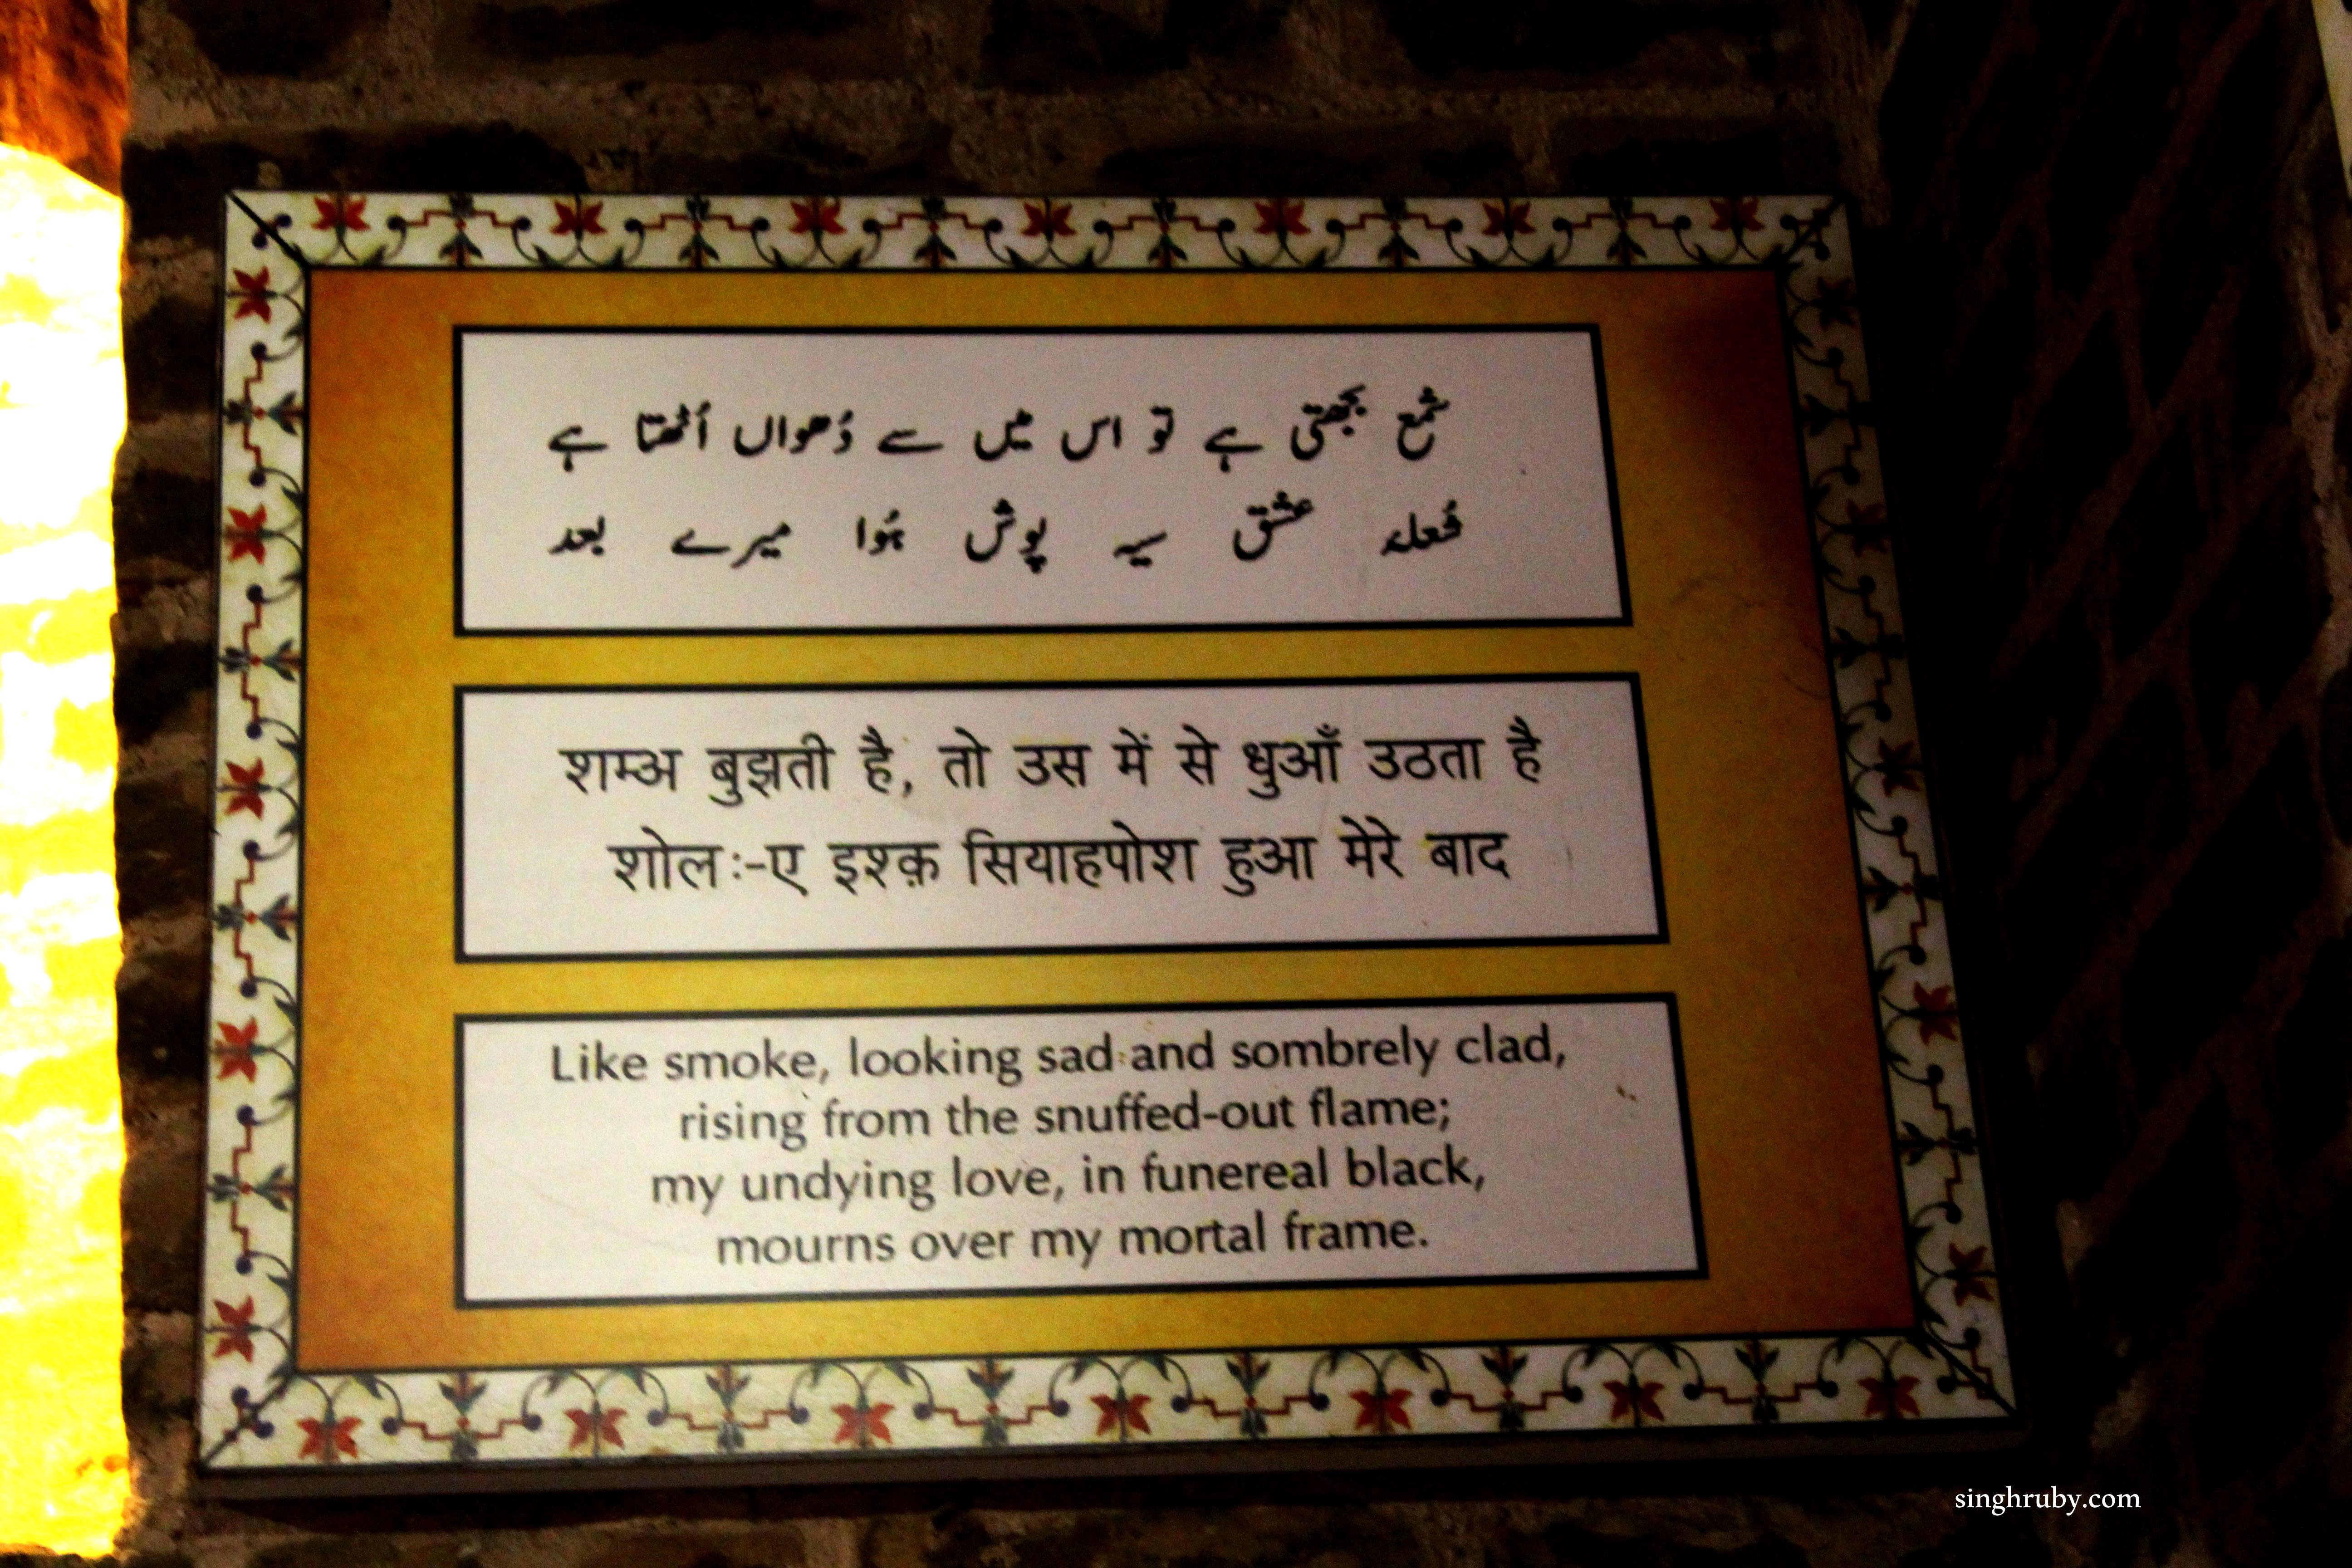 شمع بجھتی ہے تو اس میں سے دُھواں اُٹھتا ہے
شعلۂ عشق سیہ پوش ہُوا میرے بعد
शम्अ बुझती है, तो उस में से धुआँ उठता है
शोलः-ए इश्क़ सियाहपोश हुआ मेरे बाद
Like smoke, looking sad and sombrely clad,
rising from the snuffed-out flame;
my undying love, in funereal black,
mourns over my mortal frame.
singhruby.com